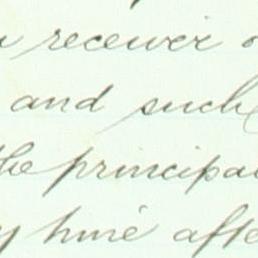 receiver o
and such
the principal
y time afte